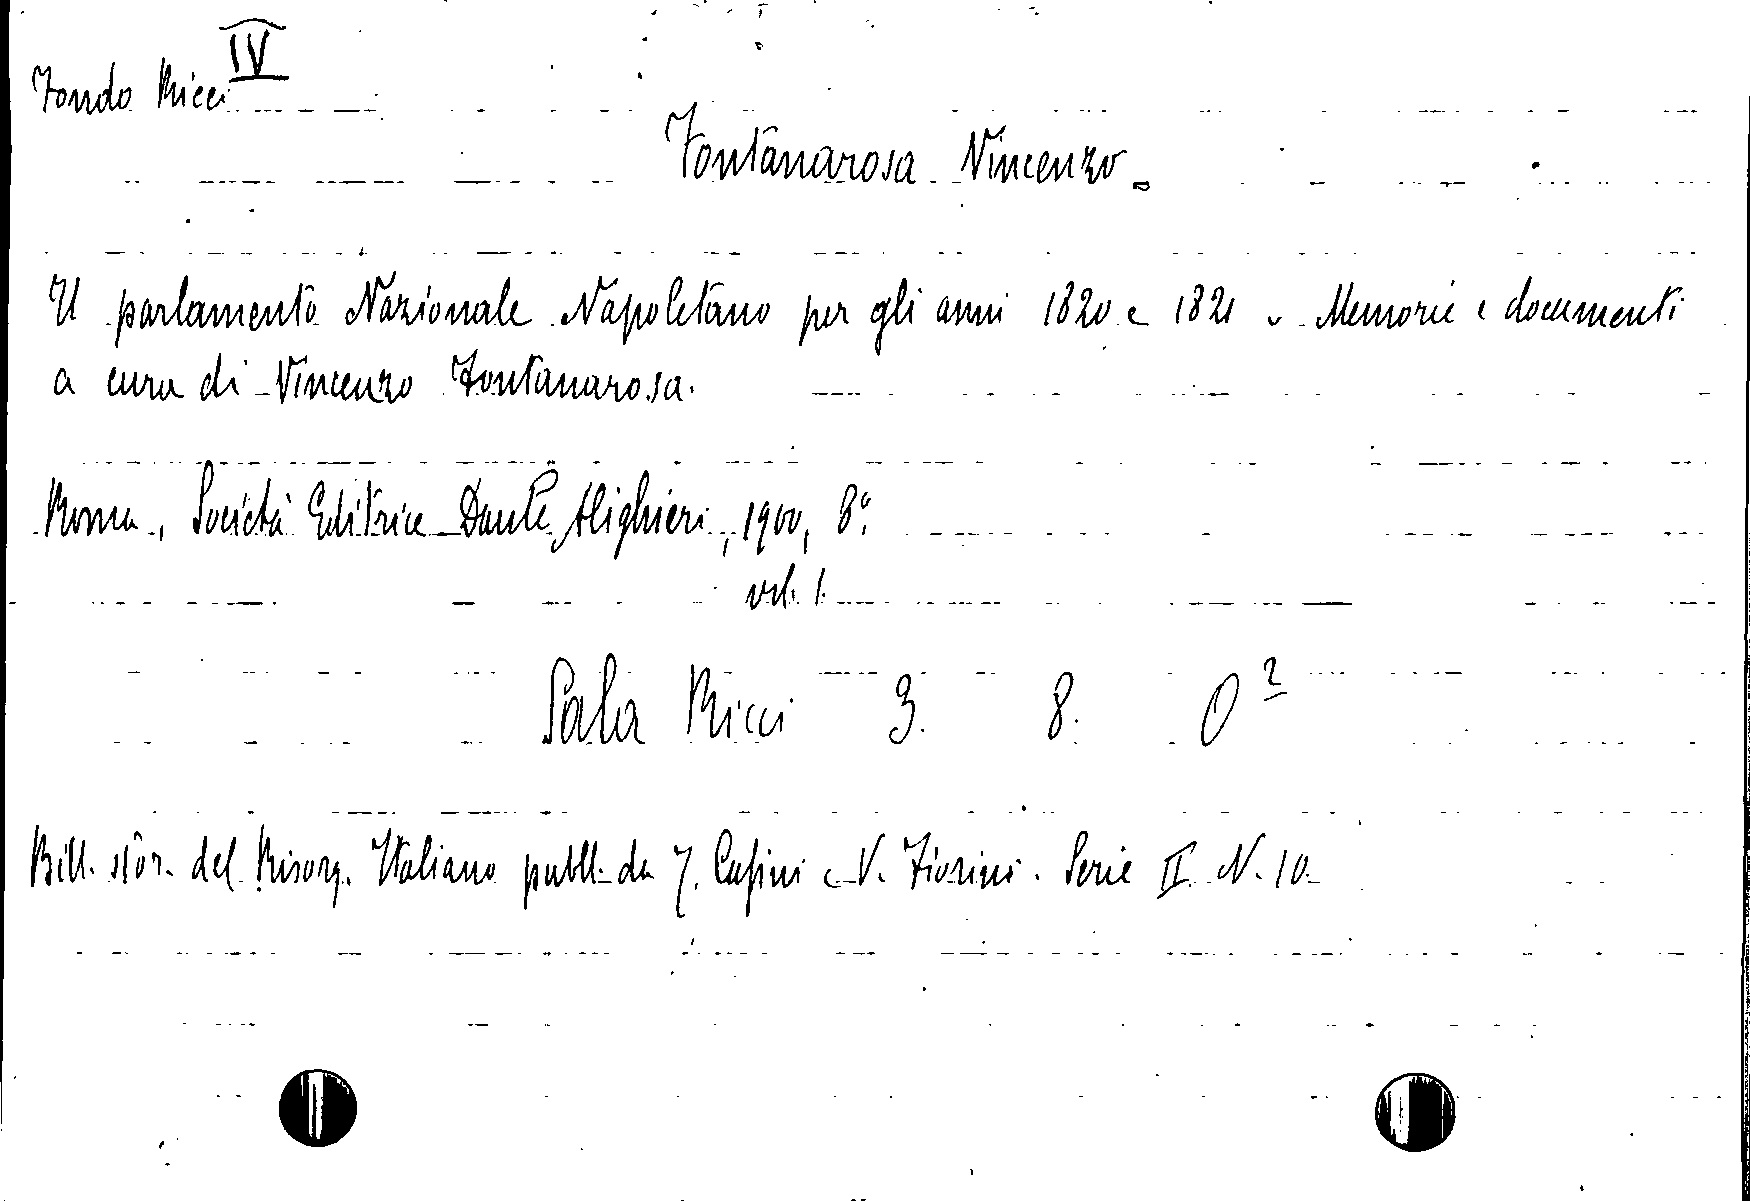 IV
Fondo Ricci
Fontanarosa Vincenzo.
Il parlamento Nazionale Napoletano per gli anni 1820 e 1821 . Memorie e documenti
a cura di Vincenzo Fontanarosa.
Roma, Società Editrice Dante Alighieri, 1900, 8°.
vol. 1.
Sala Ricci 3. 8. O²
Bibl. stor. del Risorg. Italiano pubbl. da T. Casini e V. Fiorini. Serie II N. 10.